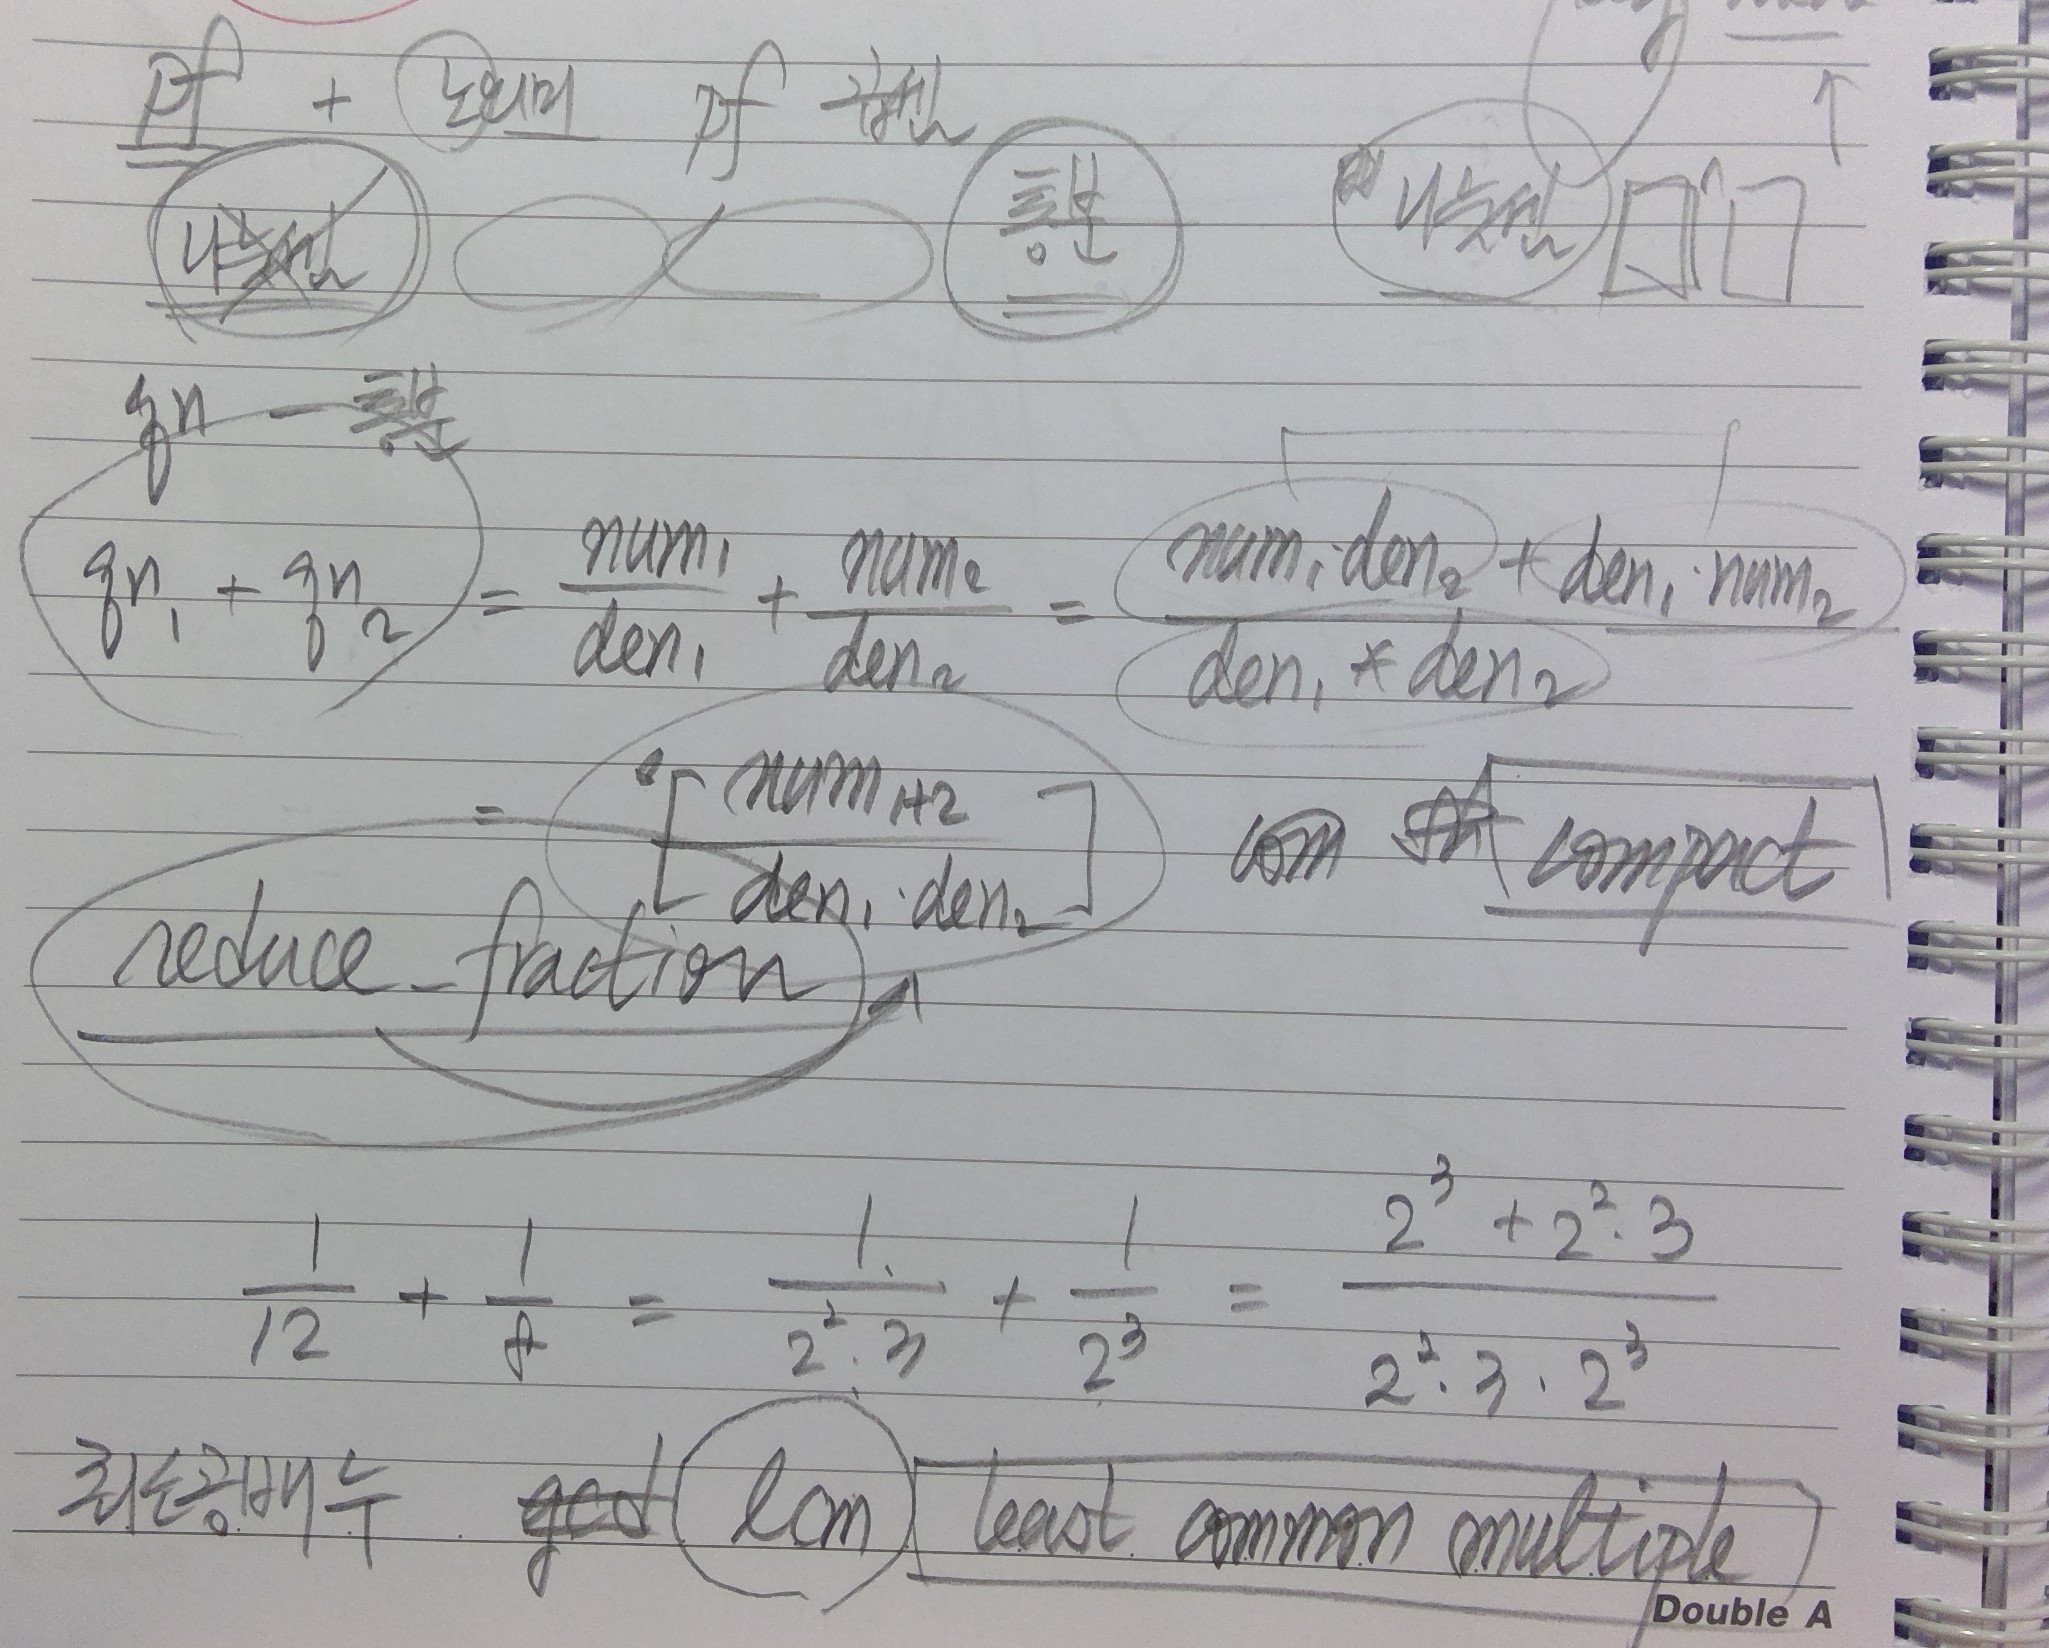 pf + 눈의미 pf 곱셈
나눗셈 통분 나눗셈
qn — 통분
qn₁ + qn₂ = num₁/den₁ + num₂/den₂ = (num₁·den₂ + den₁·num₂)/(den₁ * den₂)
= [num₁₊₂/(den₁·den₂)] com compact
reduce_fraction
1/12 + 1/8 = 1/(2²·3) + 1/2³ = (2³ + 2²·3)/(2²·3·2³)
최소공배수 gcd lcm least common multiple
Double A